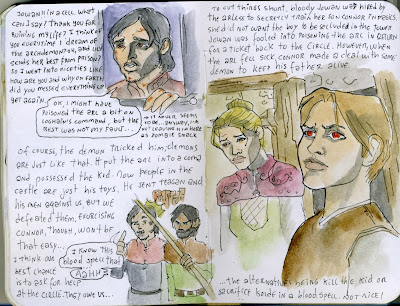 JOWAN IN A CELL. WHAT
CAN I SAY? THANK YOU FOR
RUINING MY LIFE? I THINK OF
YOU EVERYTIME I DREAM OF
THE ARCHDEMON, AND LILY
SENDS HER BEST FROM PRISON?
SO I WENT INTO NICETIES LIKE
HOW ARE YOU AND WHY ON EARTH
DID YOU MESSED EVERYTHING UP
YET AGAIN?
OK, I MIGHT HAVE
POISONED THE ARL A BIT ON
LOGHAIN'S COMMAND, BUT THE
REST WAS NOT MY FAULT...
IT NEVER SEEMS
TO BE... ANYWAY, I'M
NOT LEAVING HIM HERE
AS ZOMBIE SNACK
OF COURSE, THE DEMON TRICKED HIM, DEMONS
ARE JUST LIKE THAT. IT PUT THE ARL INTO A COMA
AND POSSESSED THE KID. NOW PEOPLE IN THE
CASTLE ARE JUST HIS TOYS. HE SENT TEAGAN AND
HIS MEN AGAINST US. BUT WE
DEFEATED THEM, EXORCISING
CONNOR, THOUGH, WON'T BE
THAT EASY...
I THINK OUR
BEST CHANCE
IS TO ASK FOR HELP
AT THE CIRCLE. THEY OWE US...
I KNOW THIS
BLOOD SPELL THAT
AAHH
TO CUT THINGS SHORT, BLOODY JOWAN WAS HIRED
BY THE ARLESS TO SECRETLY TRAIN HER SON CONNOR IN MAGICS.
SHE DID NOT WANT THE BOY TO BE SECLUDED IN THE TOWER
JOWAN WAS FOOLED INTO POISONING THE ARL IN RETURN
FOR A TICKET BACK TO THE CIRCLE. HOWEVER, WHEN
THE ARL FELL SICK, CONNOR MADE A DEAL WITH SOME
DEMON TO KEEP HIS FATHER ALIVE
...THE ALTERNATIVES BEING KILL THE KID OR
SACRIFICE ISOLDE IN A BLOOD SPELL. NOT NICE!